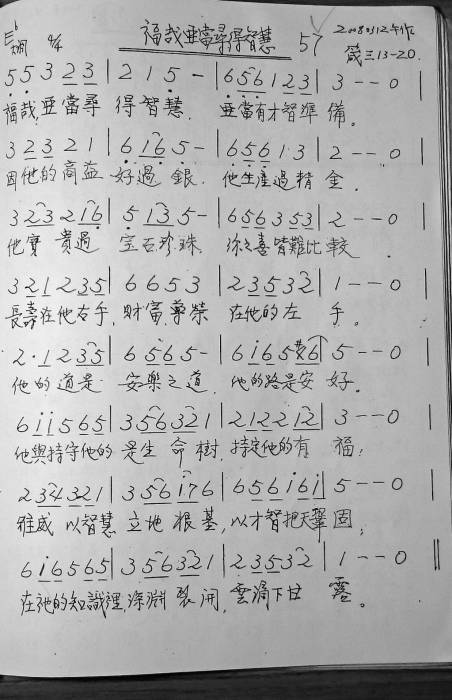 E♭調 4/4 福哉亞當尋得智慧 57 20080312午作
箴三13-20.
5 5 3 2 3 | 2 1 5 - | 6 5 6 1 2 3 | 3 - - 0 |
福哉,亞當尋 得智慧. 亞當有才智準 備。
3 2 3 2 1 | 6 1 6 5 - | 6 5 6 1·3 | 2 - - 0 |
因他的商益 好過 銀. 他生產過精 金.
3 2 3 2 1 6 | 5 1 3 5 - | 6 5 6 3 5 3 | 2 - - 0 |
他寶 貴過 宝石珍珠, 你之喜皆難比 較.
3 2 1 2 3 5 | 6 6 5 3 | 2 3 5 3 2 | 1 - - 0 |
長壽在他右手, 財富尊榮 在他的左 手。
2· 1 2 3 5 | 6 5 6 5 - | 6 i 6 5 6 | 5 - - 0 |
他的道是 安樂之道, 他的路是安 好。
6 i i 5 6 5 | 3 5 6 3 2 1 | 2 1 2 2 1 2 | 3 - - 0 |
他與持守他的 是生 命樹, 持定他的有 福;
2 3 4 3 2 1 | 3 5 6 i 7 6 | 6 5 6 i 6 i | 5 - - 0 |
雅威 以智慧 立地 根基, 以才智把天鞏 固;
6 i 6 5 6 5 | 3 5 6 3 2 1 | 2 3 5 3 2 | 1 - - 0 ||
在祂的知識裡,深淵 裂 開, 雲滴下甘 露。